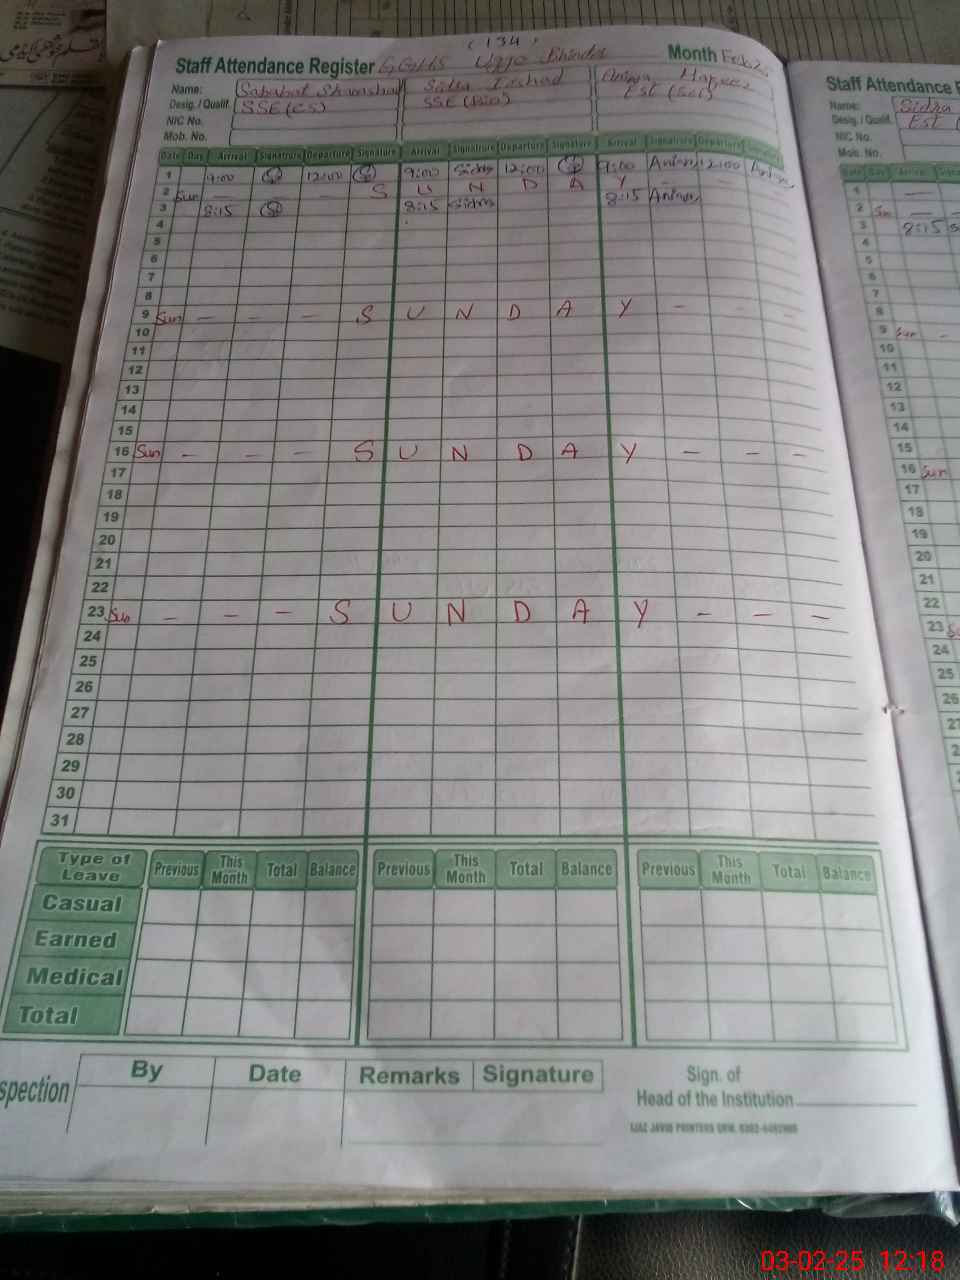 (134)
Staff Attendance Register GGHS Ugge Bhinder Month Feb 25
Name: Sababat Shamshad Sidra Ershad Aniqa Hafeez
Desig. / Qualif. SSE (CS) SSE (Bio) Est (Sci)
NIC No.
Mob. No.
Date Day Arrival Signatrure Departure Signature Arrival Signatrure Departure Signature Arrival Signatrure Departure Signature
1 9:00 12:00 9:00 Sidra 12:00 9:00 12:00
2 Sun — — — S U N D A Y - -
3 8:15 8:15 Sidra 8:15
4
5
6
7
8
9 Sun — - — S U N D A Y - - -
10
11
12
13
14
15
16 Sun - - - S U N D A Y — — —
17
18
19
20
21
22
23 Sun — — — S U N D A Y — — —
24
25
26
27
28
29
30
31
Type of Leave Previous This Month Total Balance Previous This Month Total Balance Previous This Month Total Balance
Casual
Earned
Medical
Total
spection By Date Remarks Signature
Sign. of
Head of the Institution
Staff Attendance
Name: Sidra
Desig. / Qualif. Est (
NIC No.
Mob. No.
Date Day Arrival
1 —
2 Sun — —
3 8:15
4
5
6
7
8
9 Sun -
10
11
12
13
14
15
16 Sun
17
18
19
20
21
22
23
24
25
26
03-02-25 12:18